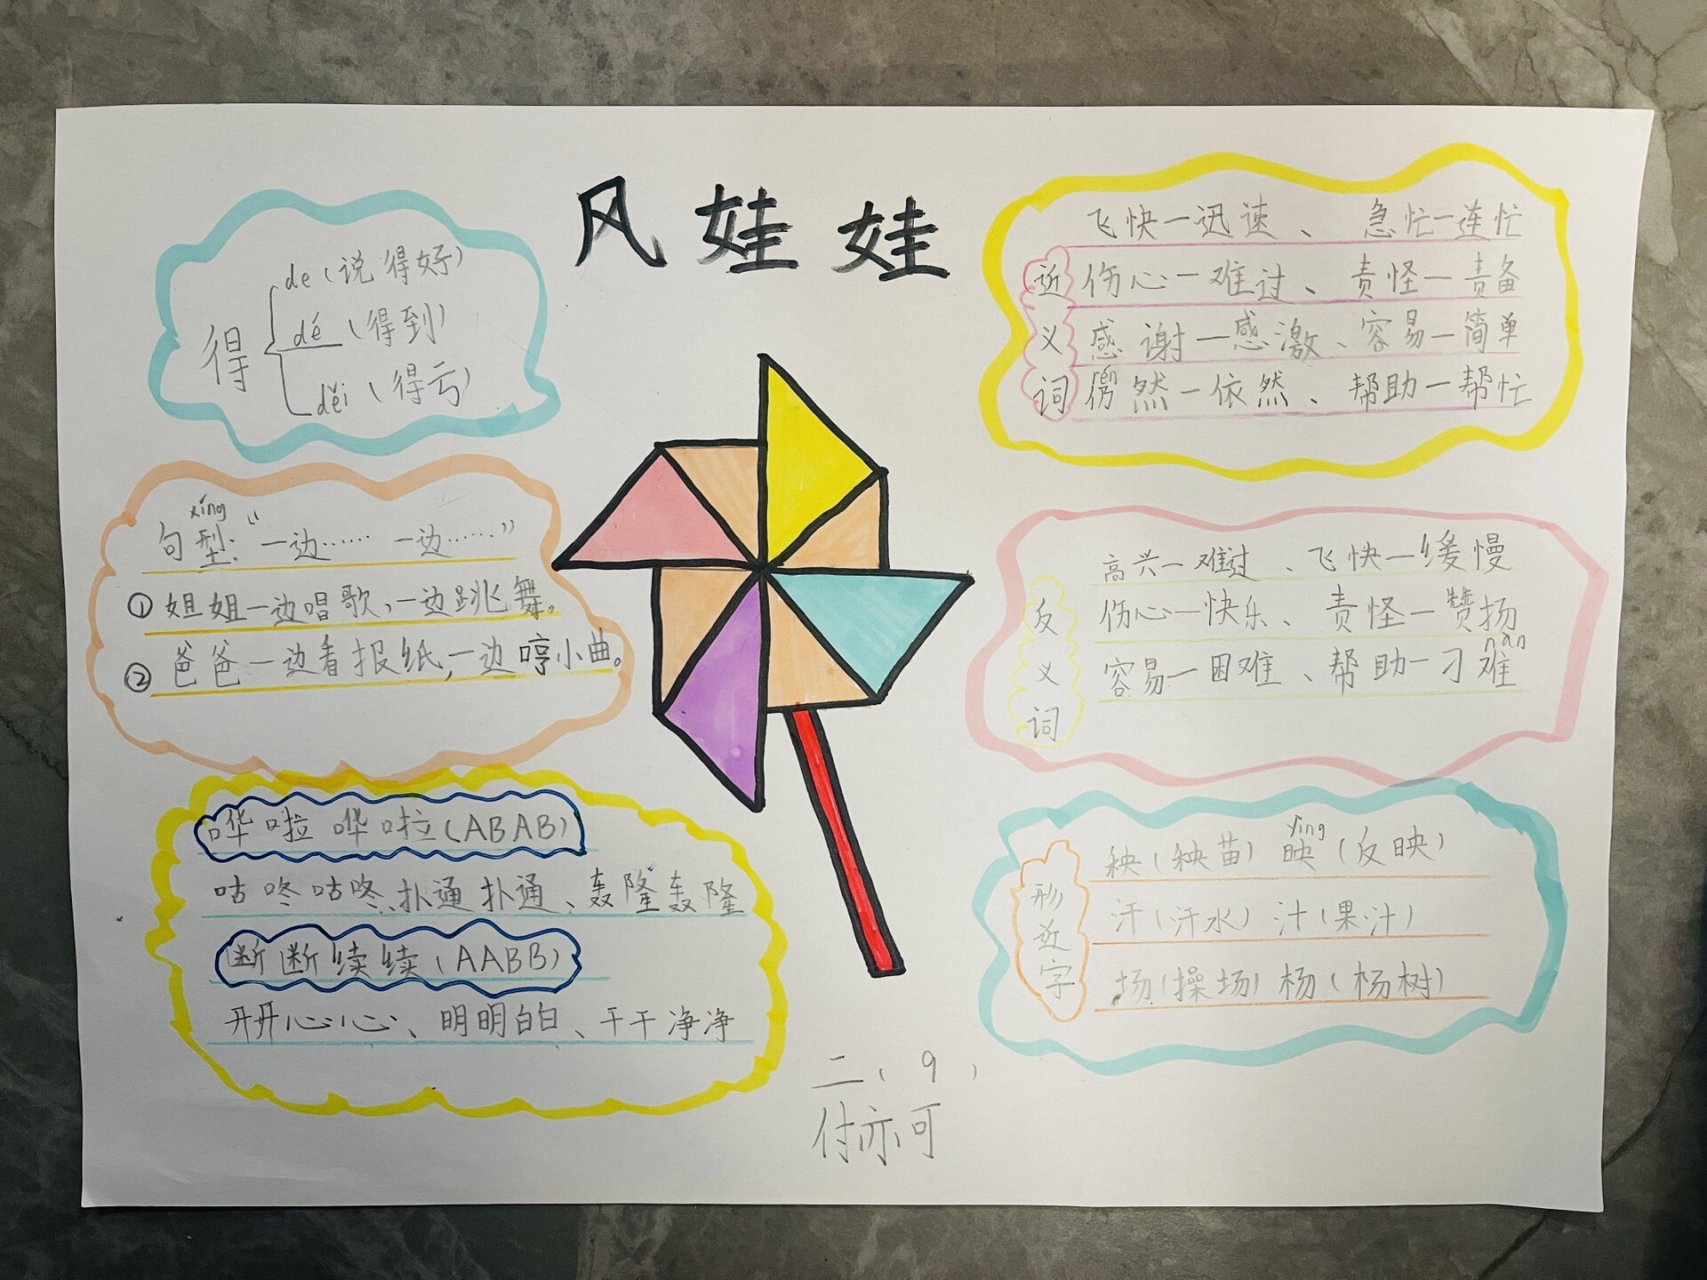 风娃娃
得
de（说得好）
dé（得到）
děi（得亏）
xíng
句型：“一边…… 一边……”
①姐姐一边唱歌，一边跳舞。
②爸爸一边看报纸，一边哼小曲。
哗啦哗啦（ABAB）
咕咚咕咚、扑通扑通、轰隆轰隆
断断续续（AABB）
开开心心、明明白白、干干净净
近义词
飞快—迅速、急忙—连忙
伤心—难过、责怪—责备
感谢—感激、容易—简单
然—依然、帮助—帮忙
反义词
高兴—难过、飞快—缓慢
伤心—快乐、责怪—赞扬
nàn
容易—困难、帮助—刁难
形近字
yìng
秧（秧苗）映（反映）
汗（汗水）汁（果汁）
场（操场）杨（杨树）
二（9）
付亦可